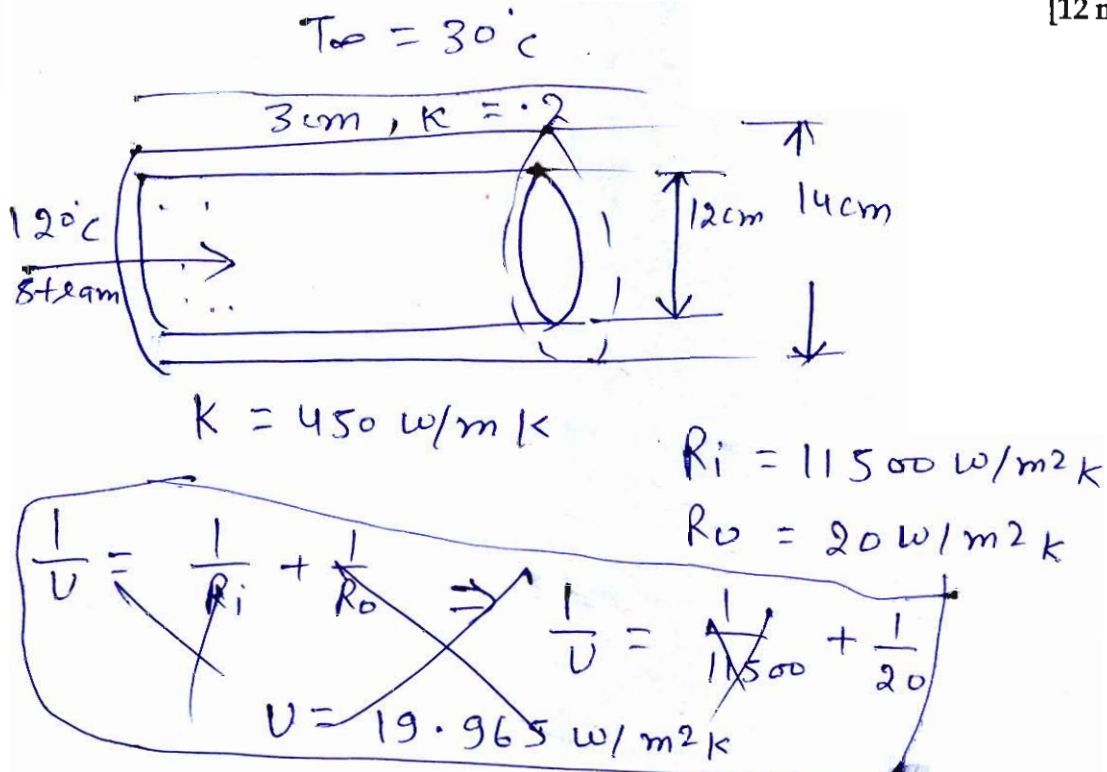 [12 m
T∞ = 30°c
3cm, K = .2
120°c
steam
12cm
14cm
K = 450 w/mK
Ri = 11500 w/m²K
Ro = 20 w/m²K
1/U = 1/Ri + 1/Ro ⇒ 1/U = 1/11500 + 1/20
U = 19.965 w/m²K